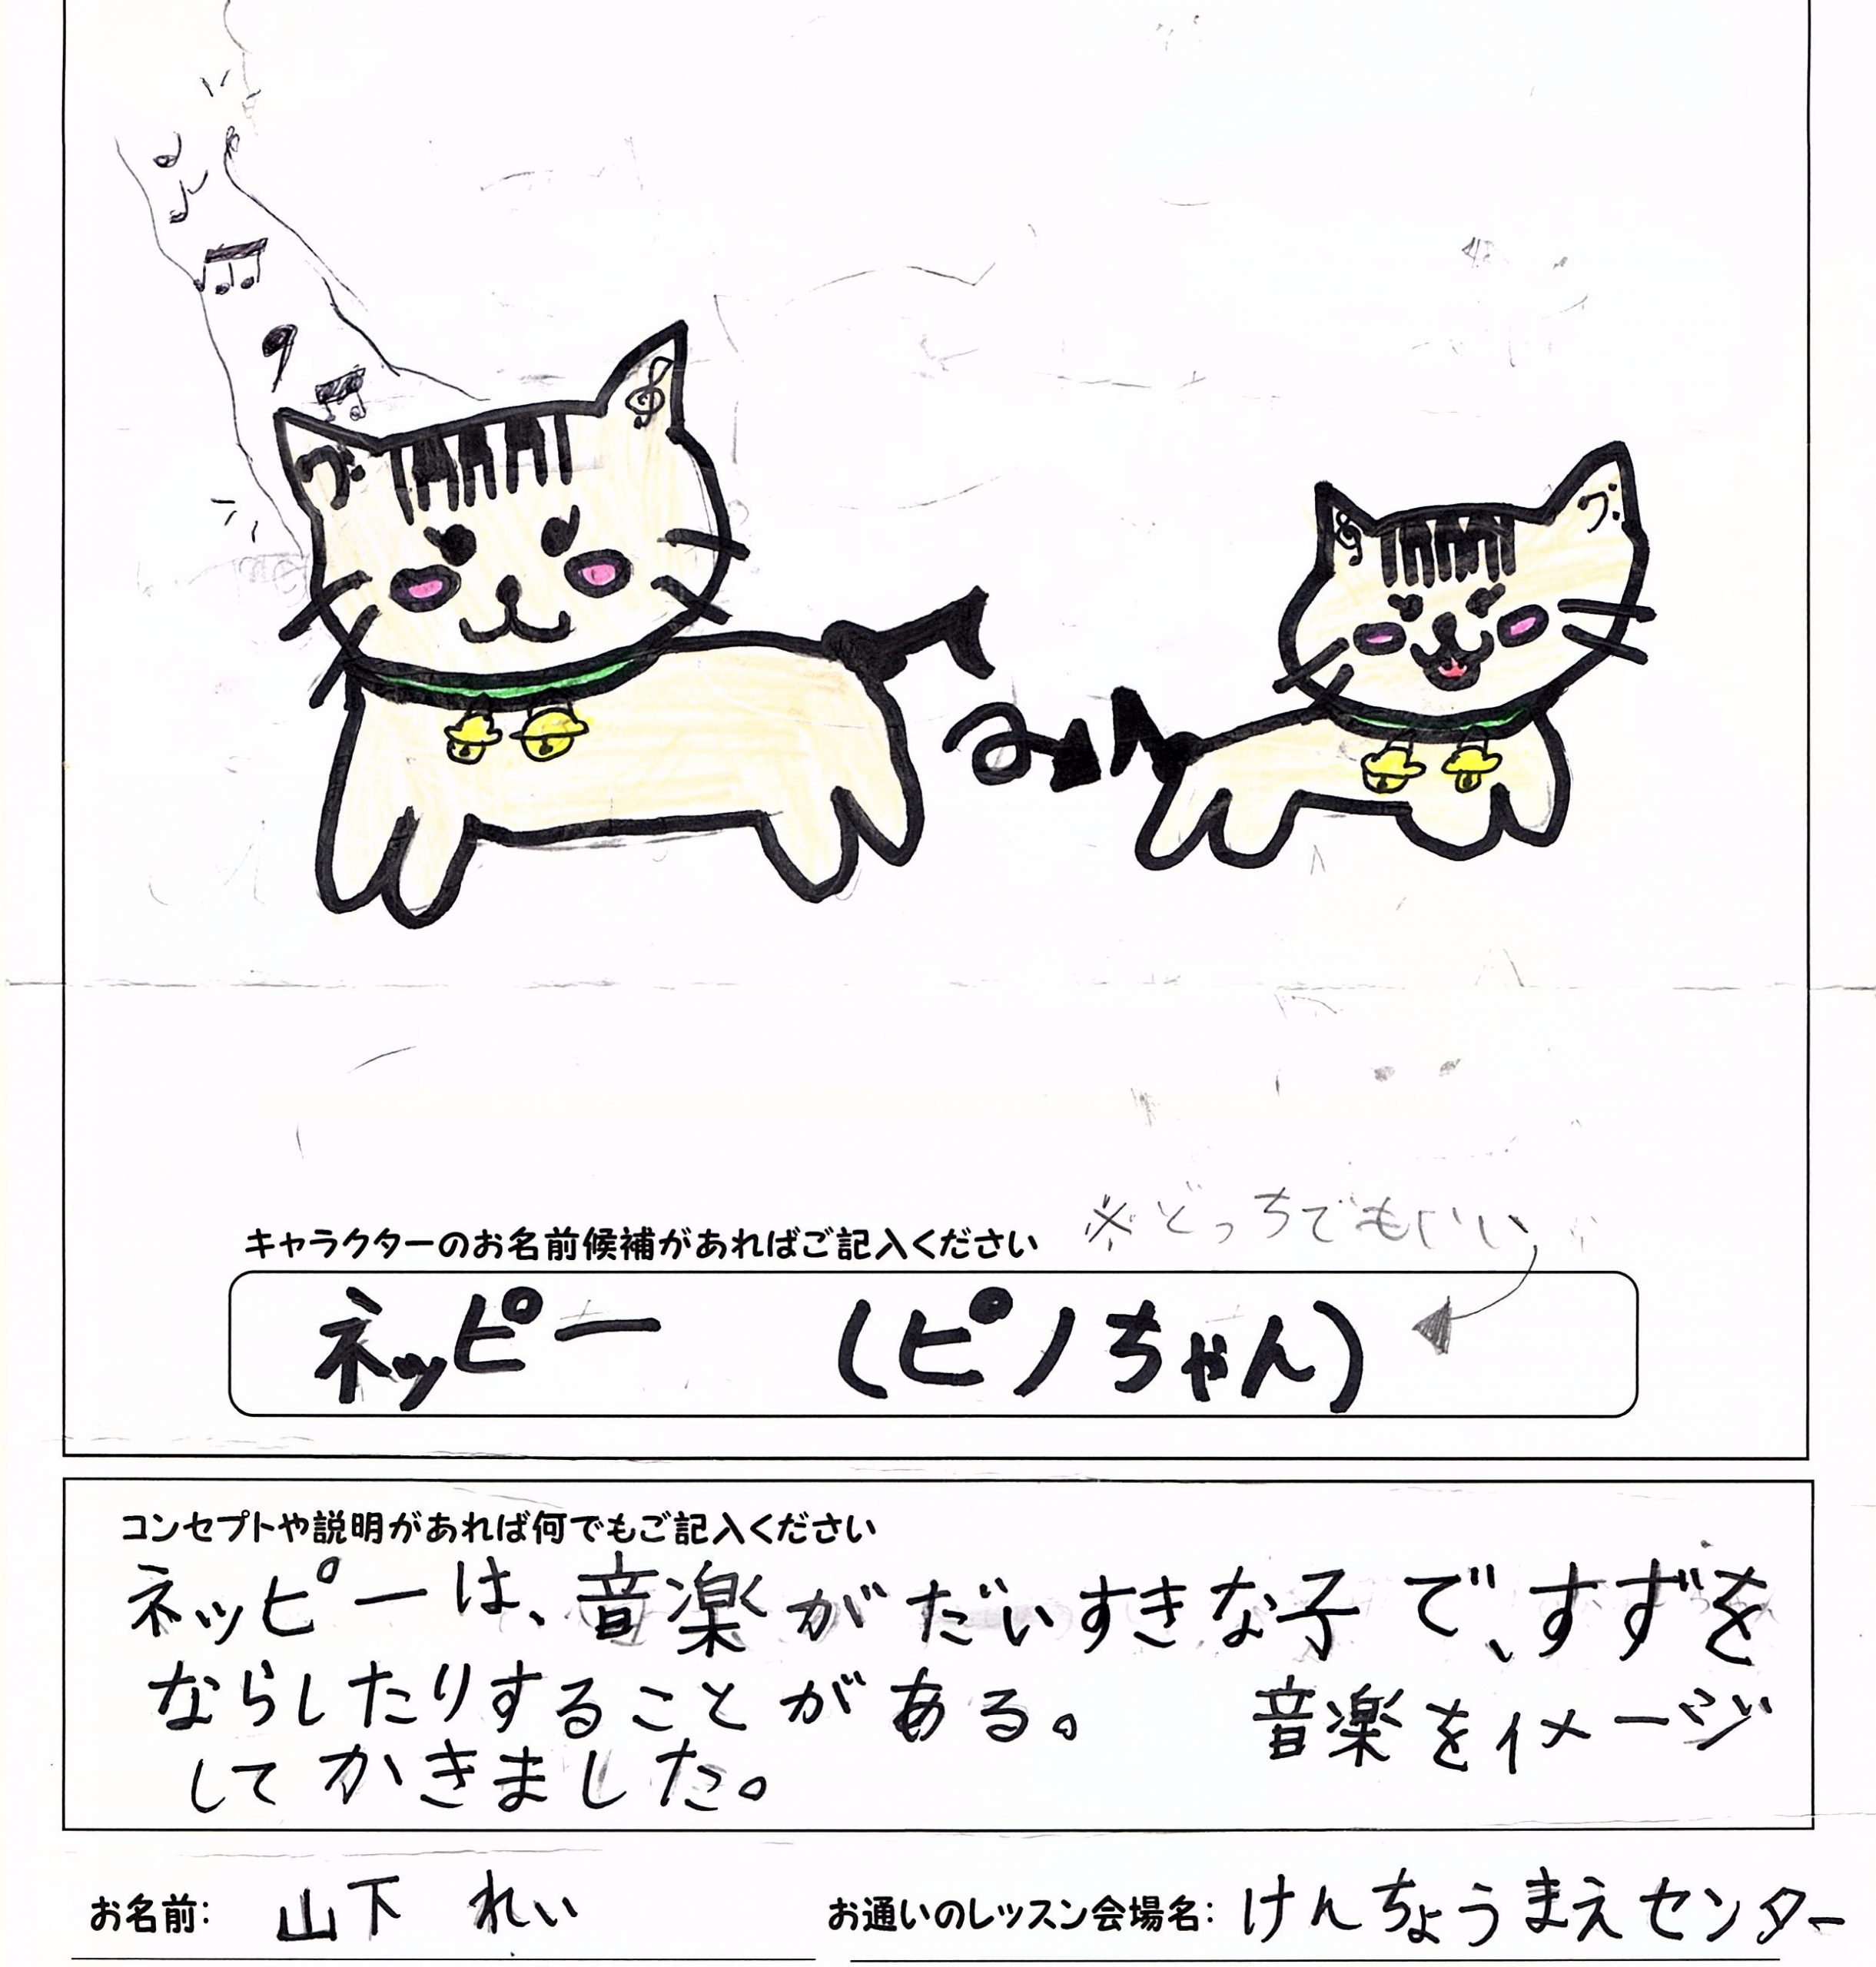 キャラクターのお名前候補があればご記入ください
※どっちでもいい
ネッピー (ピノちゃん)
コンセプトや説明があれば何でもご記入ください
ネッピーは、音楽がだいすきな子で、すずを
ならしたりすることがある。 音楽をイメージ
してかきました。
お名前: 山下 れい
お通いのレッスン会場名: けんちょうまえセンター